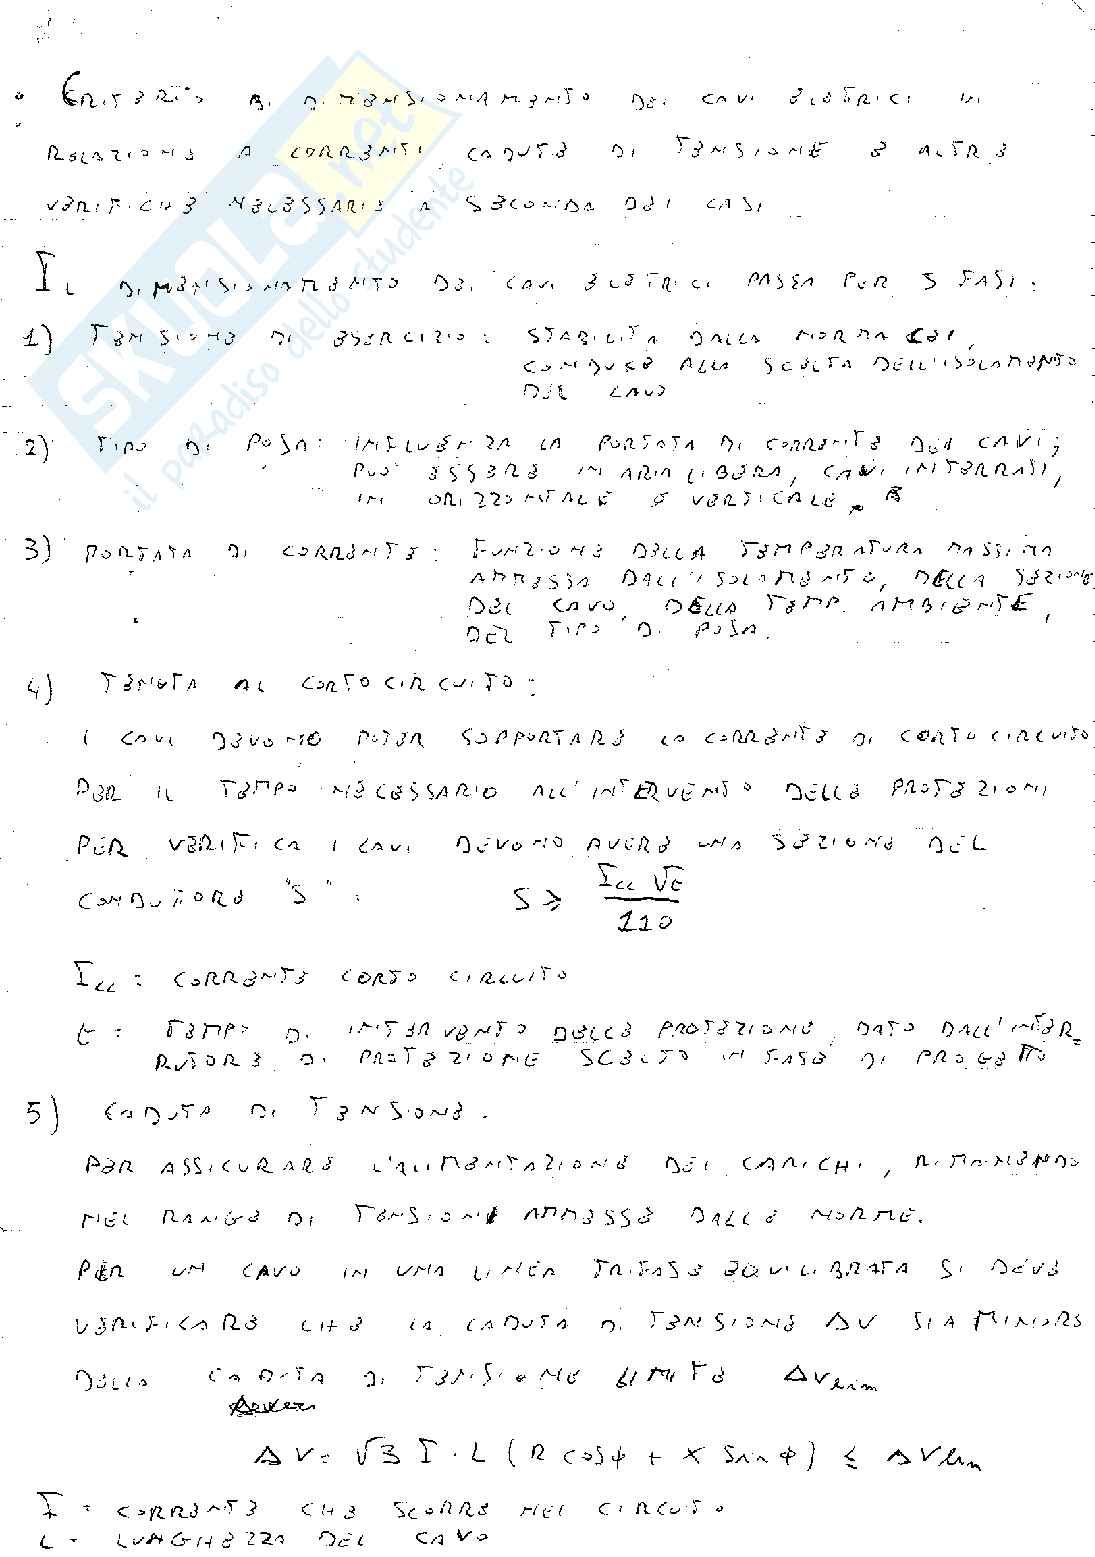 • CRITERIO DI DIMENSIONAMENTO DEI CAVI ELETTRICI IN
RELAZIONE A CORRENTI, CADUTE DI TENSIONE E ALTRE
VERIFICHE NECESSARIE A SECONDA DEI CASI
IL DIMENSIONAMENTO DEI CAVI ELETTRICI PASSA PER 5 FASI:
1) TENSIONE DI ESERCIZIO: STABILITA DALLA NORMA CEI,
CONDUCE ALLA SCELTA DELL'ISOLAMENTO
DEL CAVO
2) TIPO DI POSA: INFLUENZA LA PORTATA DI CORRENTE DEI CAVI;
PUO' ESSERE IN ARIA LIBERA, CAVI INTERRATI,
IN ORIZZONTALE O VERTICALE.
3) PORTATA DI CORRENTE: FUNZIONE DELLA TEMPERATURA MASSIMA
AMMESSA DALL'ISOLAMENTO, DELLA SEZIONE
DEL CAVO, DELLA TEMP. AMBIENTE,
DEL TIPO DI POSA.
4) TENUTA AL CORTO CIRCUITO:
I CAVI DEVONO POTER SOPPORTARE LA CORRENTE DI CORTO CIRCUITO
PER IL TEMPO NECESSARIO ALL'INTERVENTO DELLE PROTEZIONI
PER VERIFICA I CAVI DEVONO AVERE UNA SEZIONE DEL
CONDUTTORE "S": S ≥ Icc √t / 110
Icc = CORRENTE CORTO CIRCUITO
t = TEMPO DI INTERVENTO DELLE PROTEZIONE, DATO DALL'INTER=
RUTTORE DI PROTEZIONE SCELTO IN FASE DI PROGETTO
5) CADUTA DI TENSIONE.
PER ASSICURARE L'ALIMENTAZIONE DEI CARICHI, RIMANENDO
NEL RANGE DI TENSIONI AMMESSE DALLE NORME.
PER UN CAVO IN UNA LINEA TRIFASE EQUILIBRATA SI DEVE
VERIFICARE CHE LA CADUTA DI TENSIONE ΔV SIA MINORE
DELLA CADUTA DI TENSIONE LIMITE ΔVlim
ΔV = √3 I · L (R cosφ + X sinφ) ≤ ΔVlim
I = CORRENTE CHE SCORRE NEL CIRCUITO
L = LUNGHEZZA DEL CAVO
SKUOLA.net
il paradiso dello studente